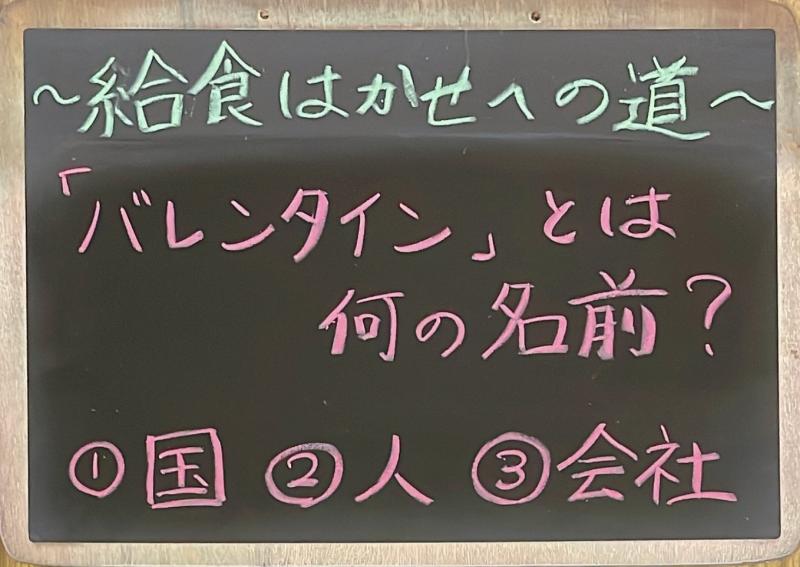 ～給食はかせへの道～
「バレンタイン」とは
何の名前？
①国 ②人 ③会社